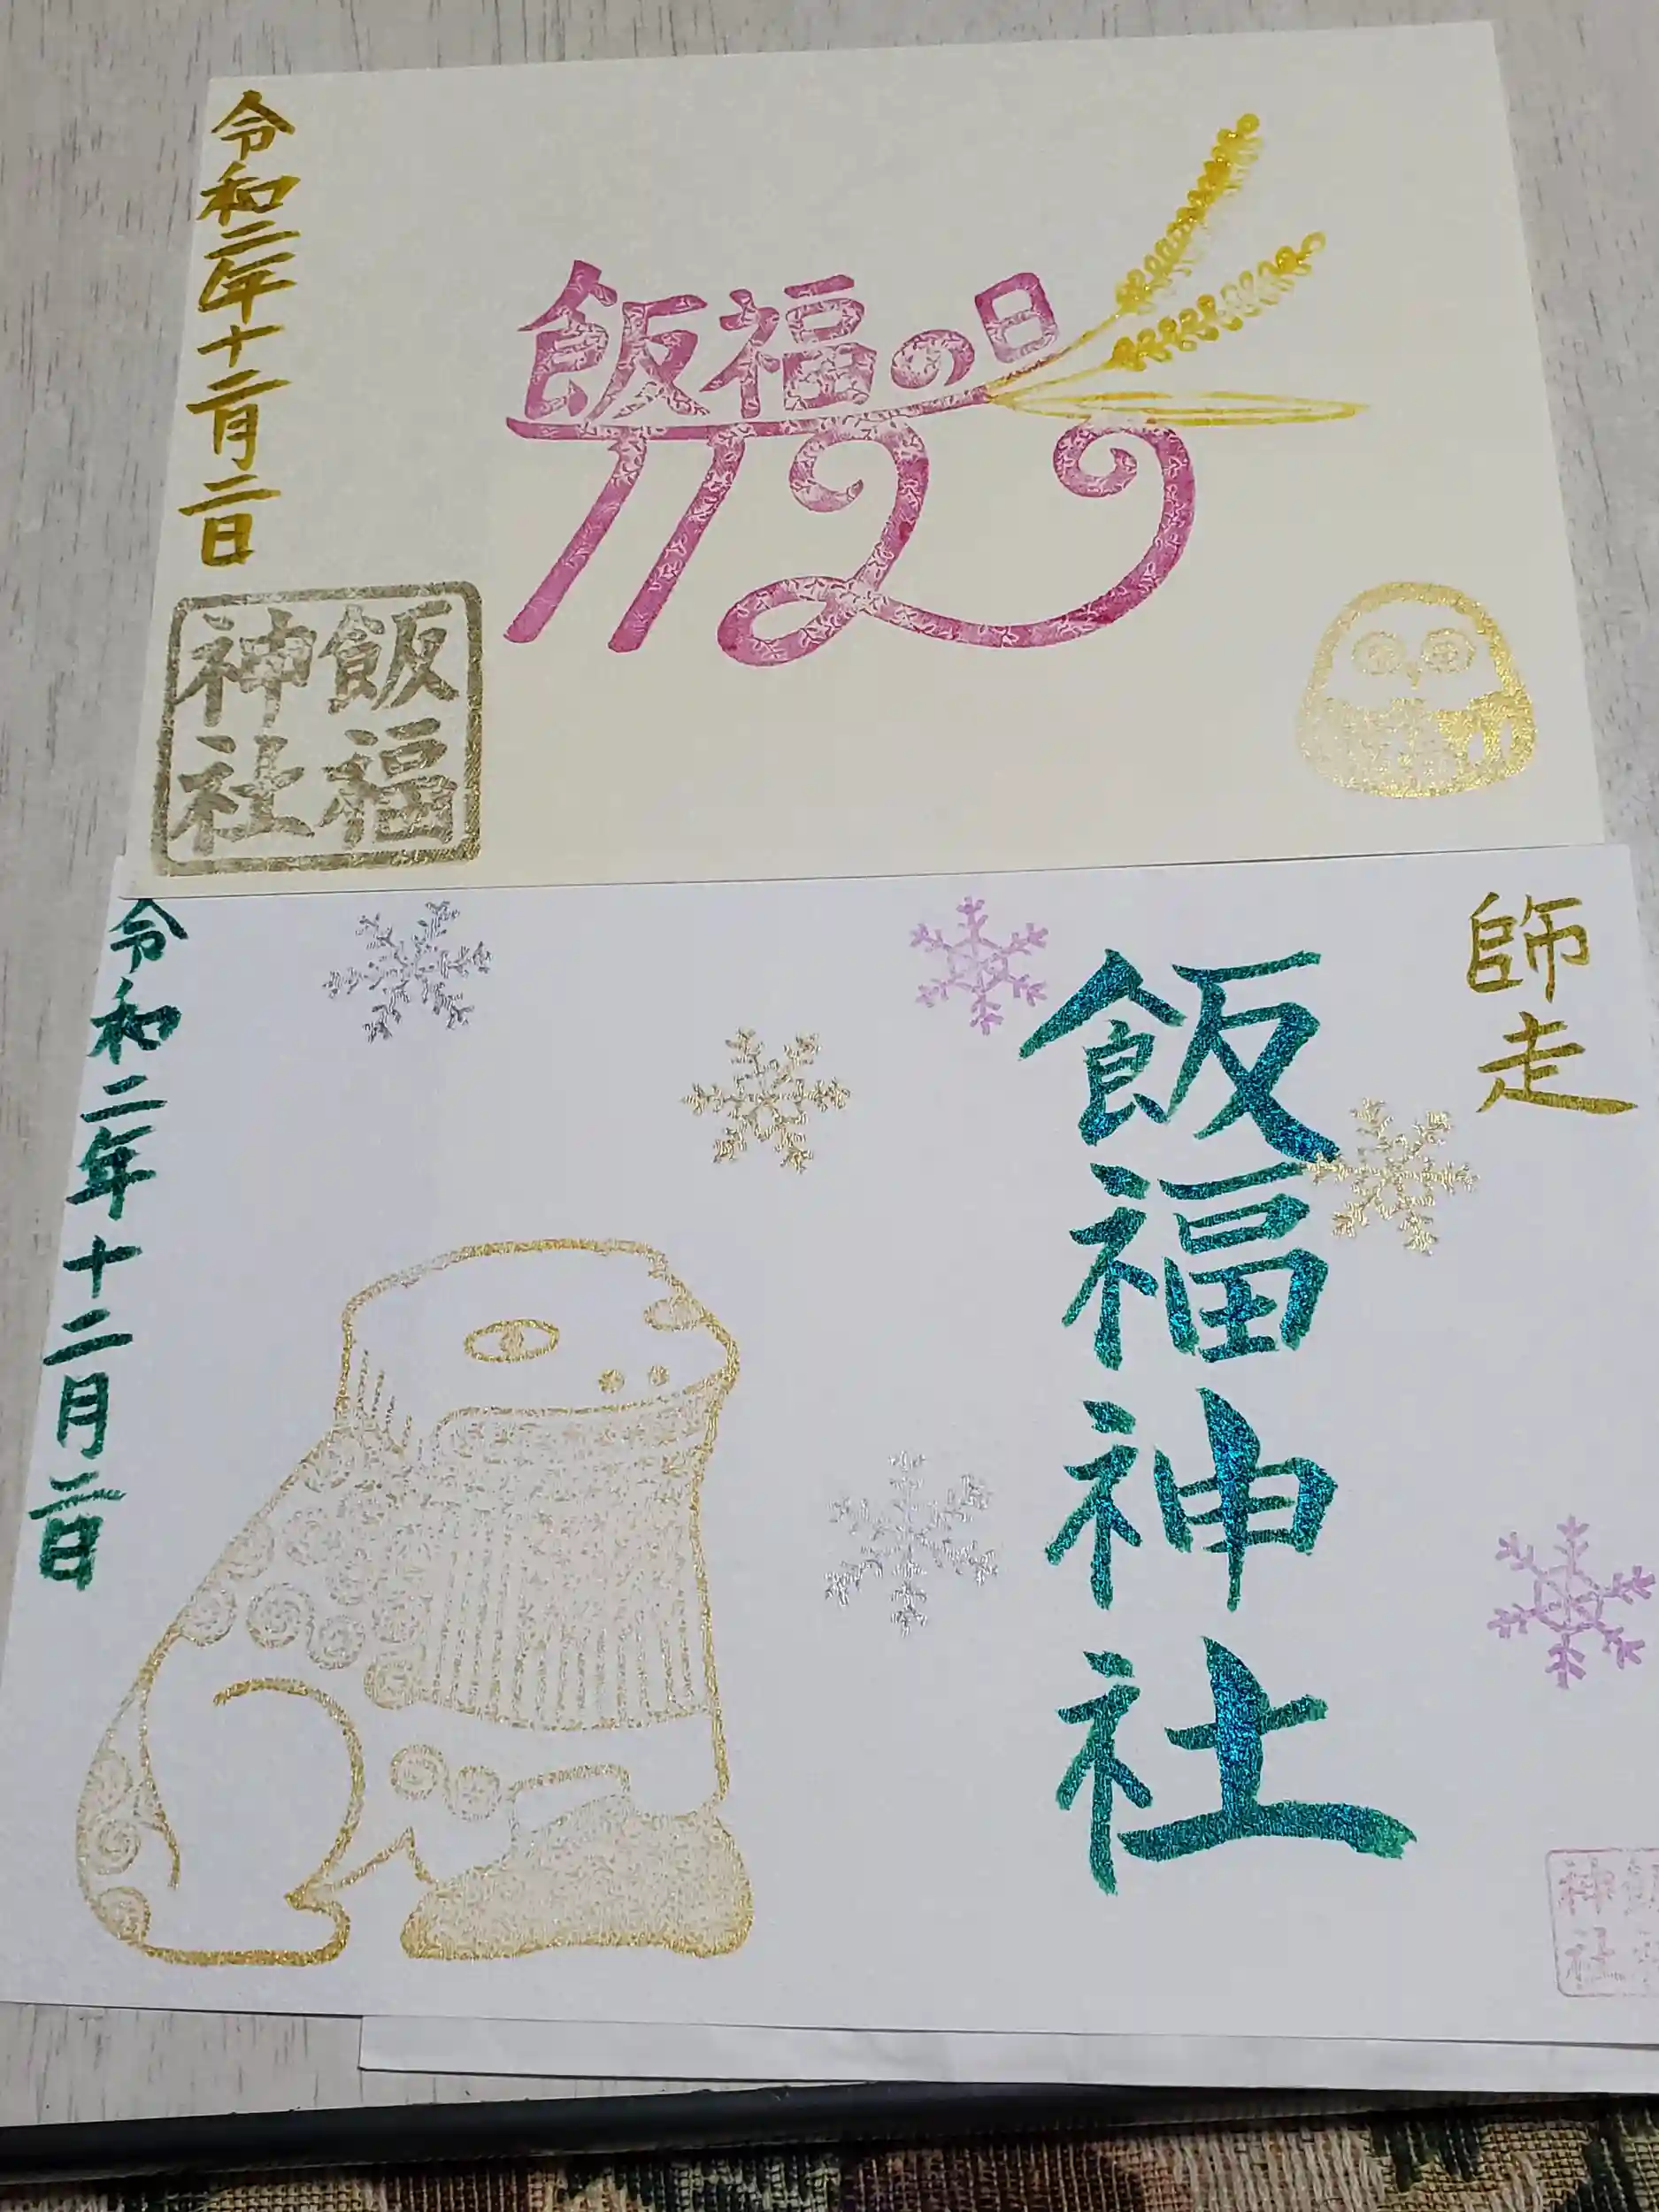 飯福の日
1122
令和二年十二月二日
飯福
神社
師走
飯福神社
令和二年十二月二日
神
社